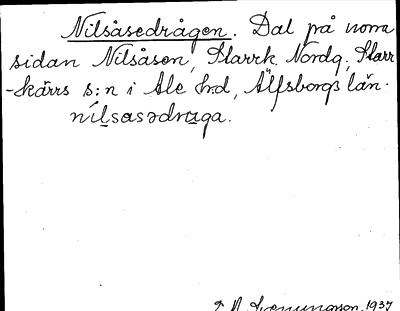 Nilsåsedrågen. Dal på norra
sidan Nilsåsen, Starrk. Nordg., Starr
-kärrs s:n i Ale hrd, Älfsborgs län.
nilsasədraga.
1937